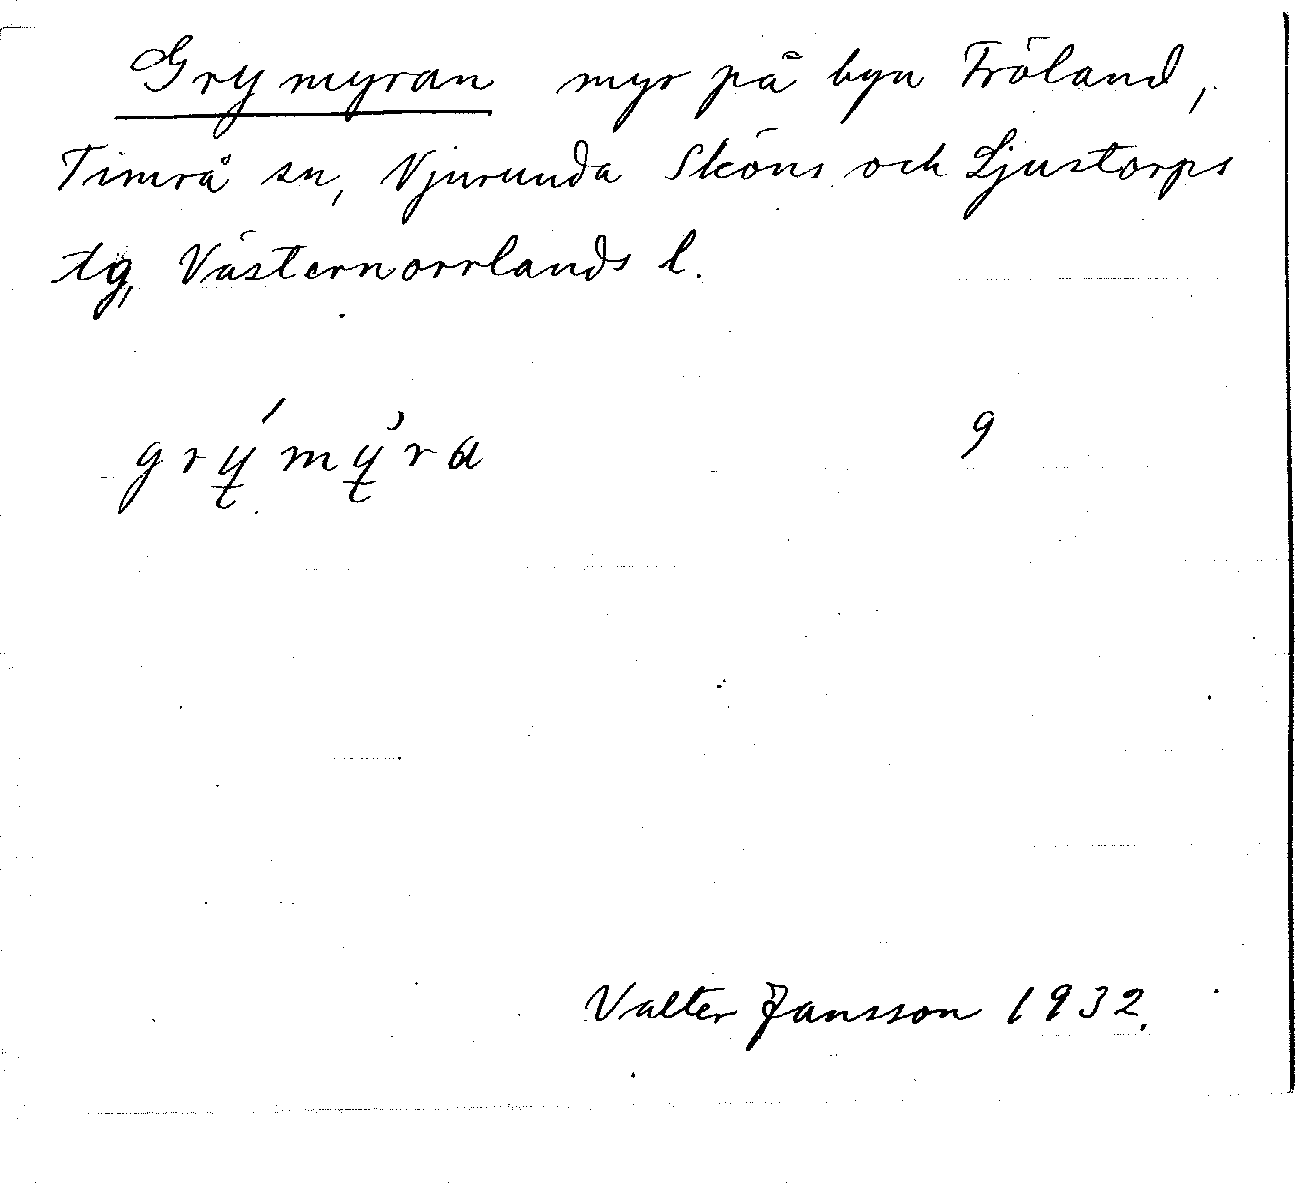 Grymyran myr på byn Fröland,
Timrå sn, Njurunda Sköns och Ljustorps
tg, Västernorrlands l.
grýmy̓ra 9
Valter Jansson 1932.